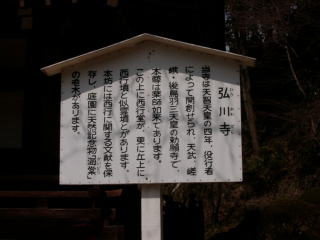 弘川寺
当寺は天智天皇の四年、役行者
によって開創せられ、天武、嵯
峨・後鳥羽三天皇の勅願寺で、
本尊は薬師如来であります。
この上に西行堂が、更に丘上に
西行墳と似雲墳とがあります。
本坊には西行に関する文献を保
存し、庭園に天然記念物「海棠」
の老木があります。